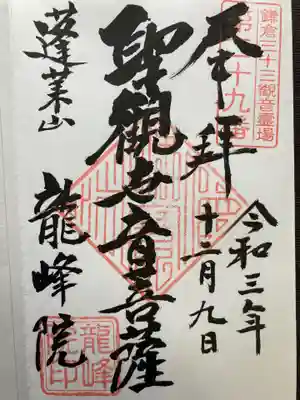 鎌倉三十三観音霊場
第二十九番
奉拝
令和三年
十二月九日
聖觀世音菩薩
蓬莱山
龍峰院
龍峰
院印